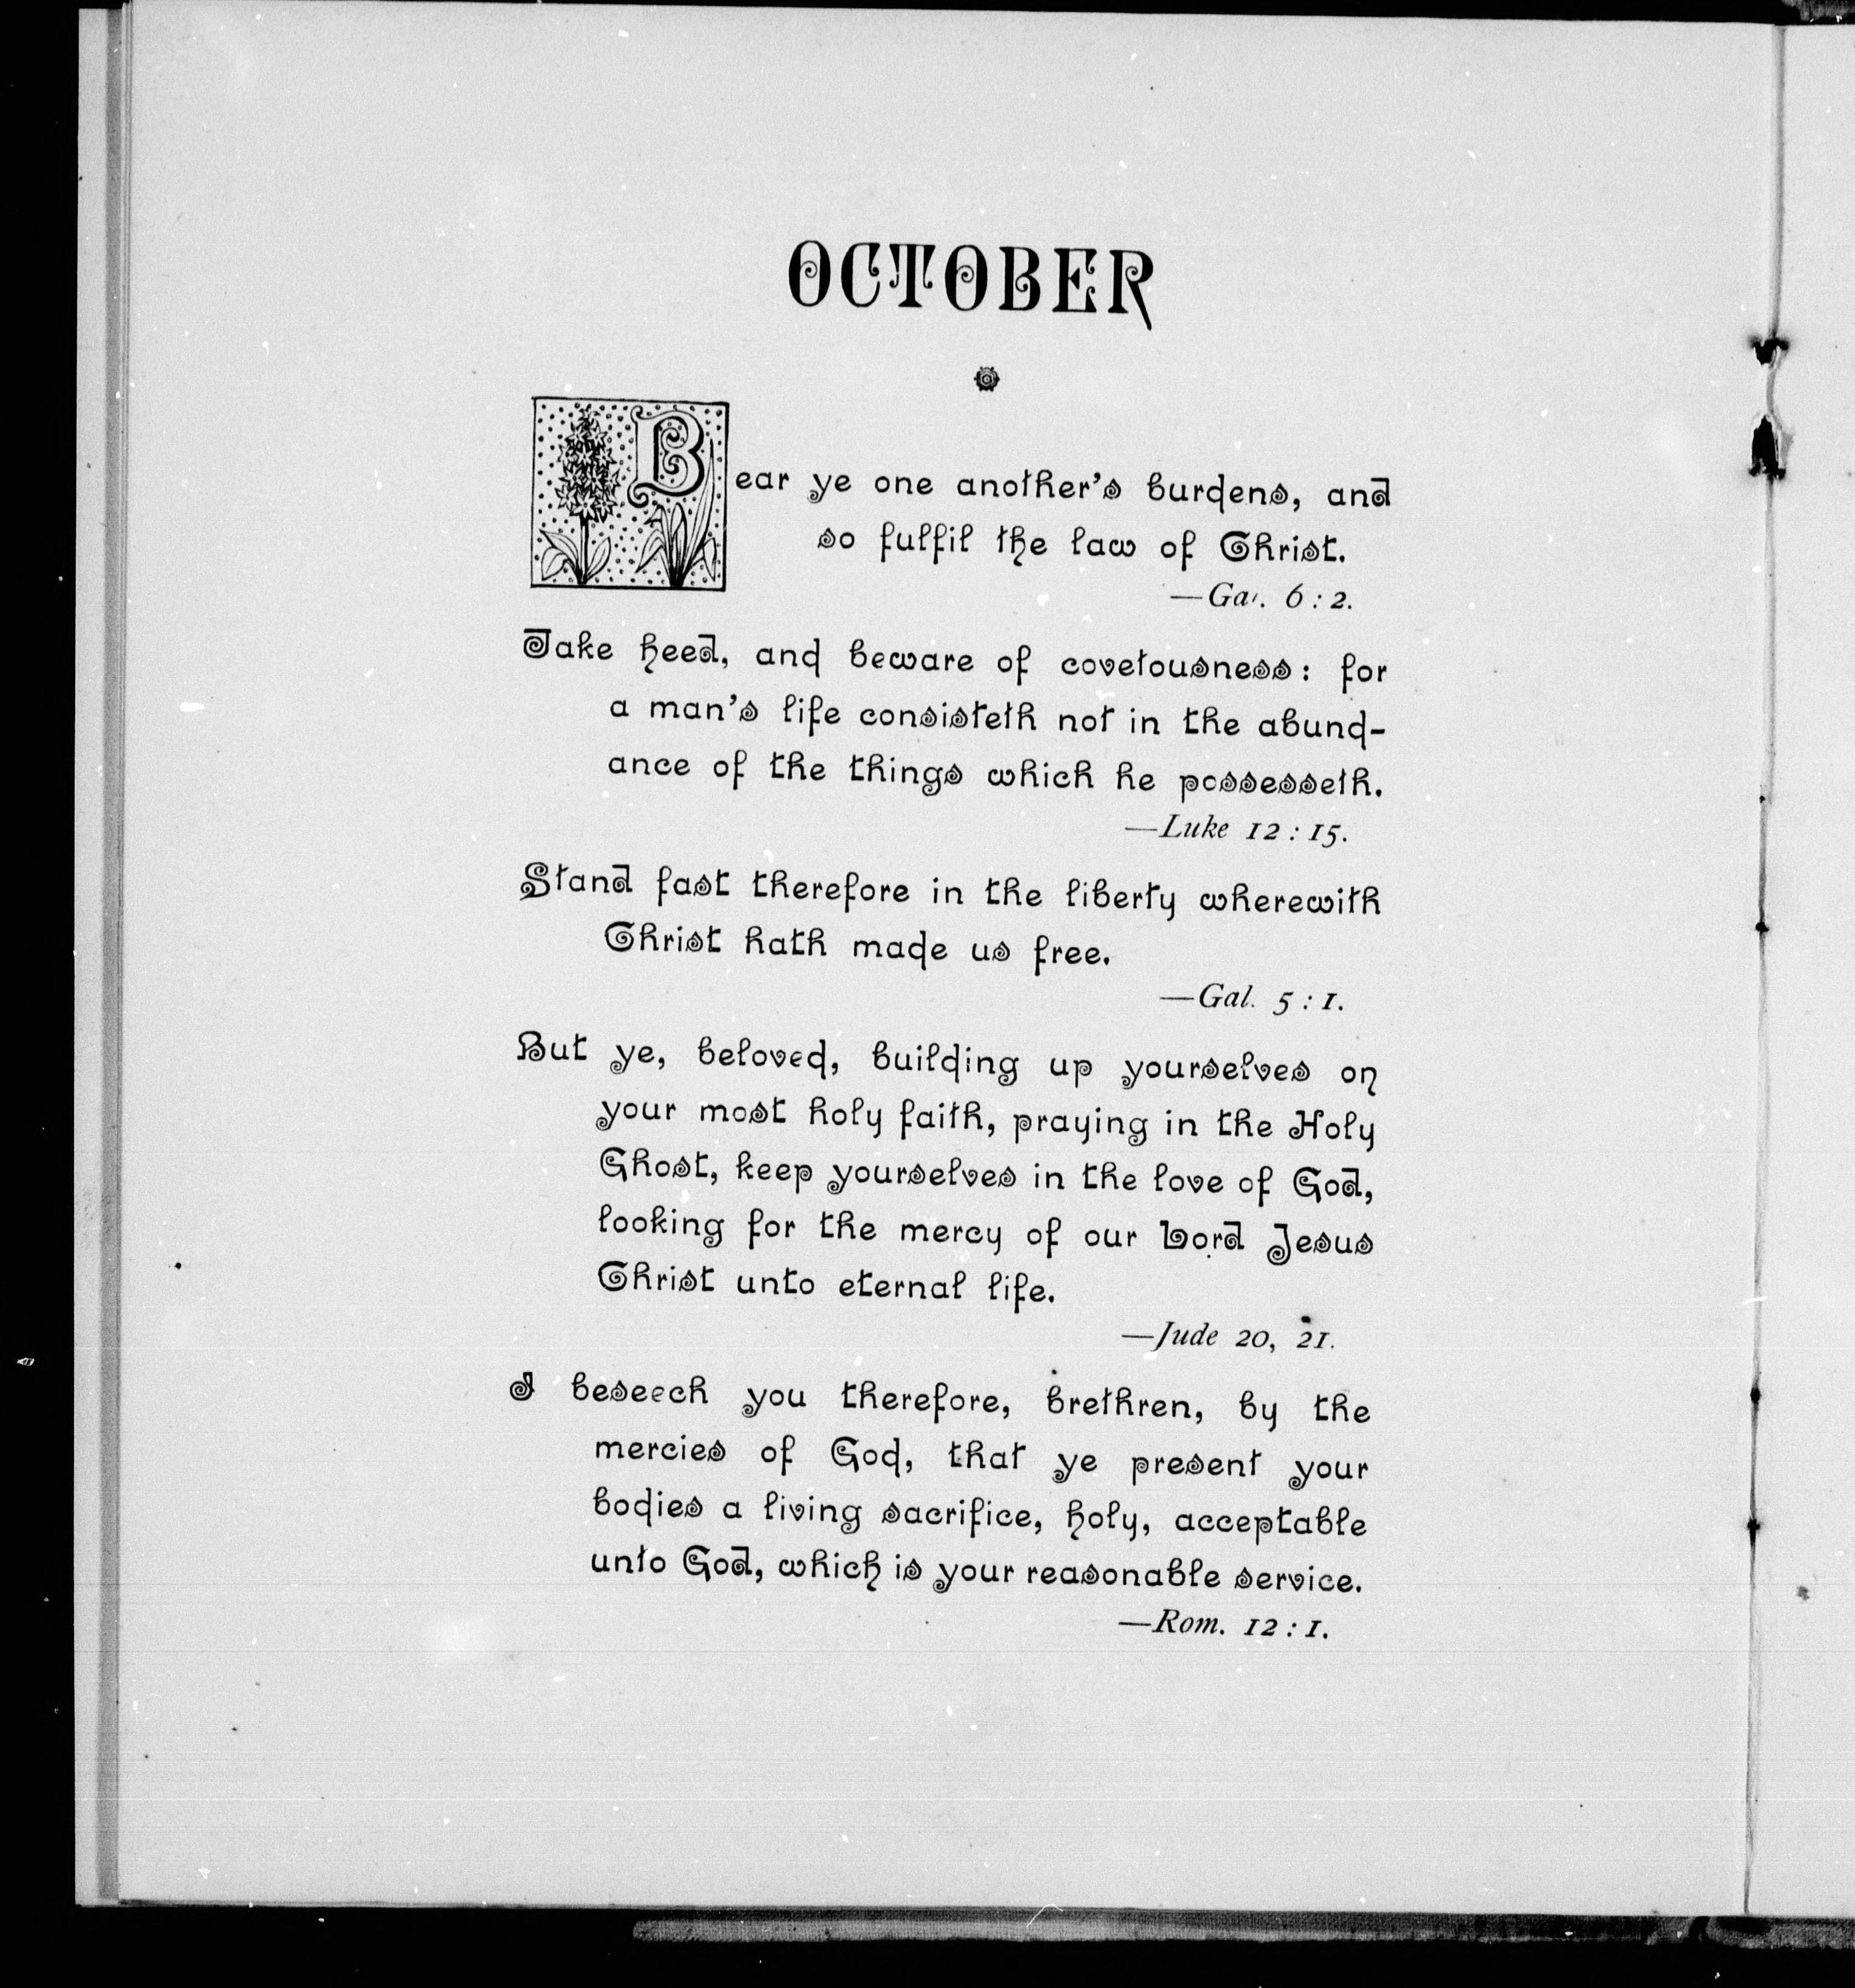 OCTOBER
Bear ye one another's burdens, and
so fulfil the law of Christ.
—Gal. 6 : 2.
Take heed, and beware of covetousness: for
a man's life consisteth not in the abund-
ance of the things which he possesseth.
—Luke 12 : 15.
Stand fast therefore in the liberty wherewith
Christ hath made us free.
—Gal. 5 : 1.
But ye, beloved, building up yourselves on
your most holy faith, praying in the Holy
Ghost, keep yourselves in the love of God,
looking for the mercy of our Lord Jesus
Christ unto eternal life.
—Jude 20, 21.
I beseech you therefore, brethren, by the
mercies of God, that ye present your
bodies a living sacrifice, holy, acceptable
unto God, which is your reasonable service.
—Rom. 12 : 1.